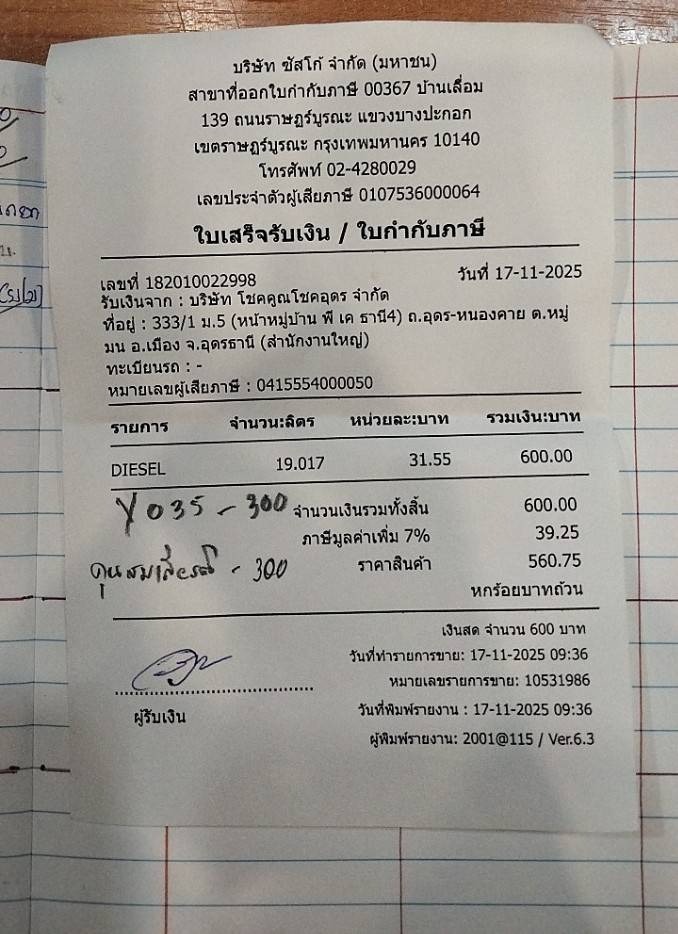 บริษัท ซัสโก้ จำกัด (มหาชน)
สาขาที่ออกใบกำกับภาษี 00367 บ้านเลื่อม
139 ถนนราษฎร์บูรณะ แขวงบางปะกอก
เขตราษฎร์บูรณะ กรุงเทพมหานคร 10140
โทรศัพท์ 02-4280029
เลขประจำตัวผู้เสียภาษี 0107536000064
ใบเสร็จรับเงิน / ใบกำกับภาษี
เลขที่ 182010022998 วันที่ 17-11-2025
รับเงินจาก : บริษัท โชคคูณโชคอุดร จำกัด
ที่อยู่ : 333/1 ม.5 (หน้าหมู่บ้าน พี เค ธานี4) ถ.อุดร-หนองคาย ต.หมู
มน อ.เมือง จ.อุดรธานี (สำนักงานใหญ่)
ทะเบียนรถ : -
หมายเลขผู้เสียภาษี : 0415554000050
รายการ จำนวน:ลิตร หน่วยละ:บาท รวมเงิน:บาท
DIESEL 19.017 31.55 600.00
Y035 - 300 จำนวนเงินรวมทั้งสิ้น 600.00
ภาษีมูลค่าเพิ่ม 7% 39.25
- 300 ราคาสินค้า 560.75
หกร้อยบาทถ้วน
เงินสด จำนวน 600 บาท
วันที่ทำรายการขาย: 17-11-2025 09:36
หมายเลขรายการขาย: 10531986
ผู้รับเงิน วันที่พิมพ์รายงาน : 17-11-2025 09:36
ผู้พิมพ์รายงาน: 2001@115 / Ver.6.3